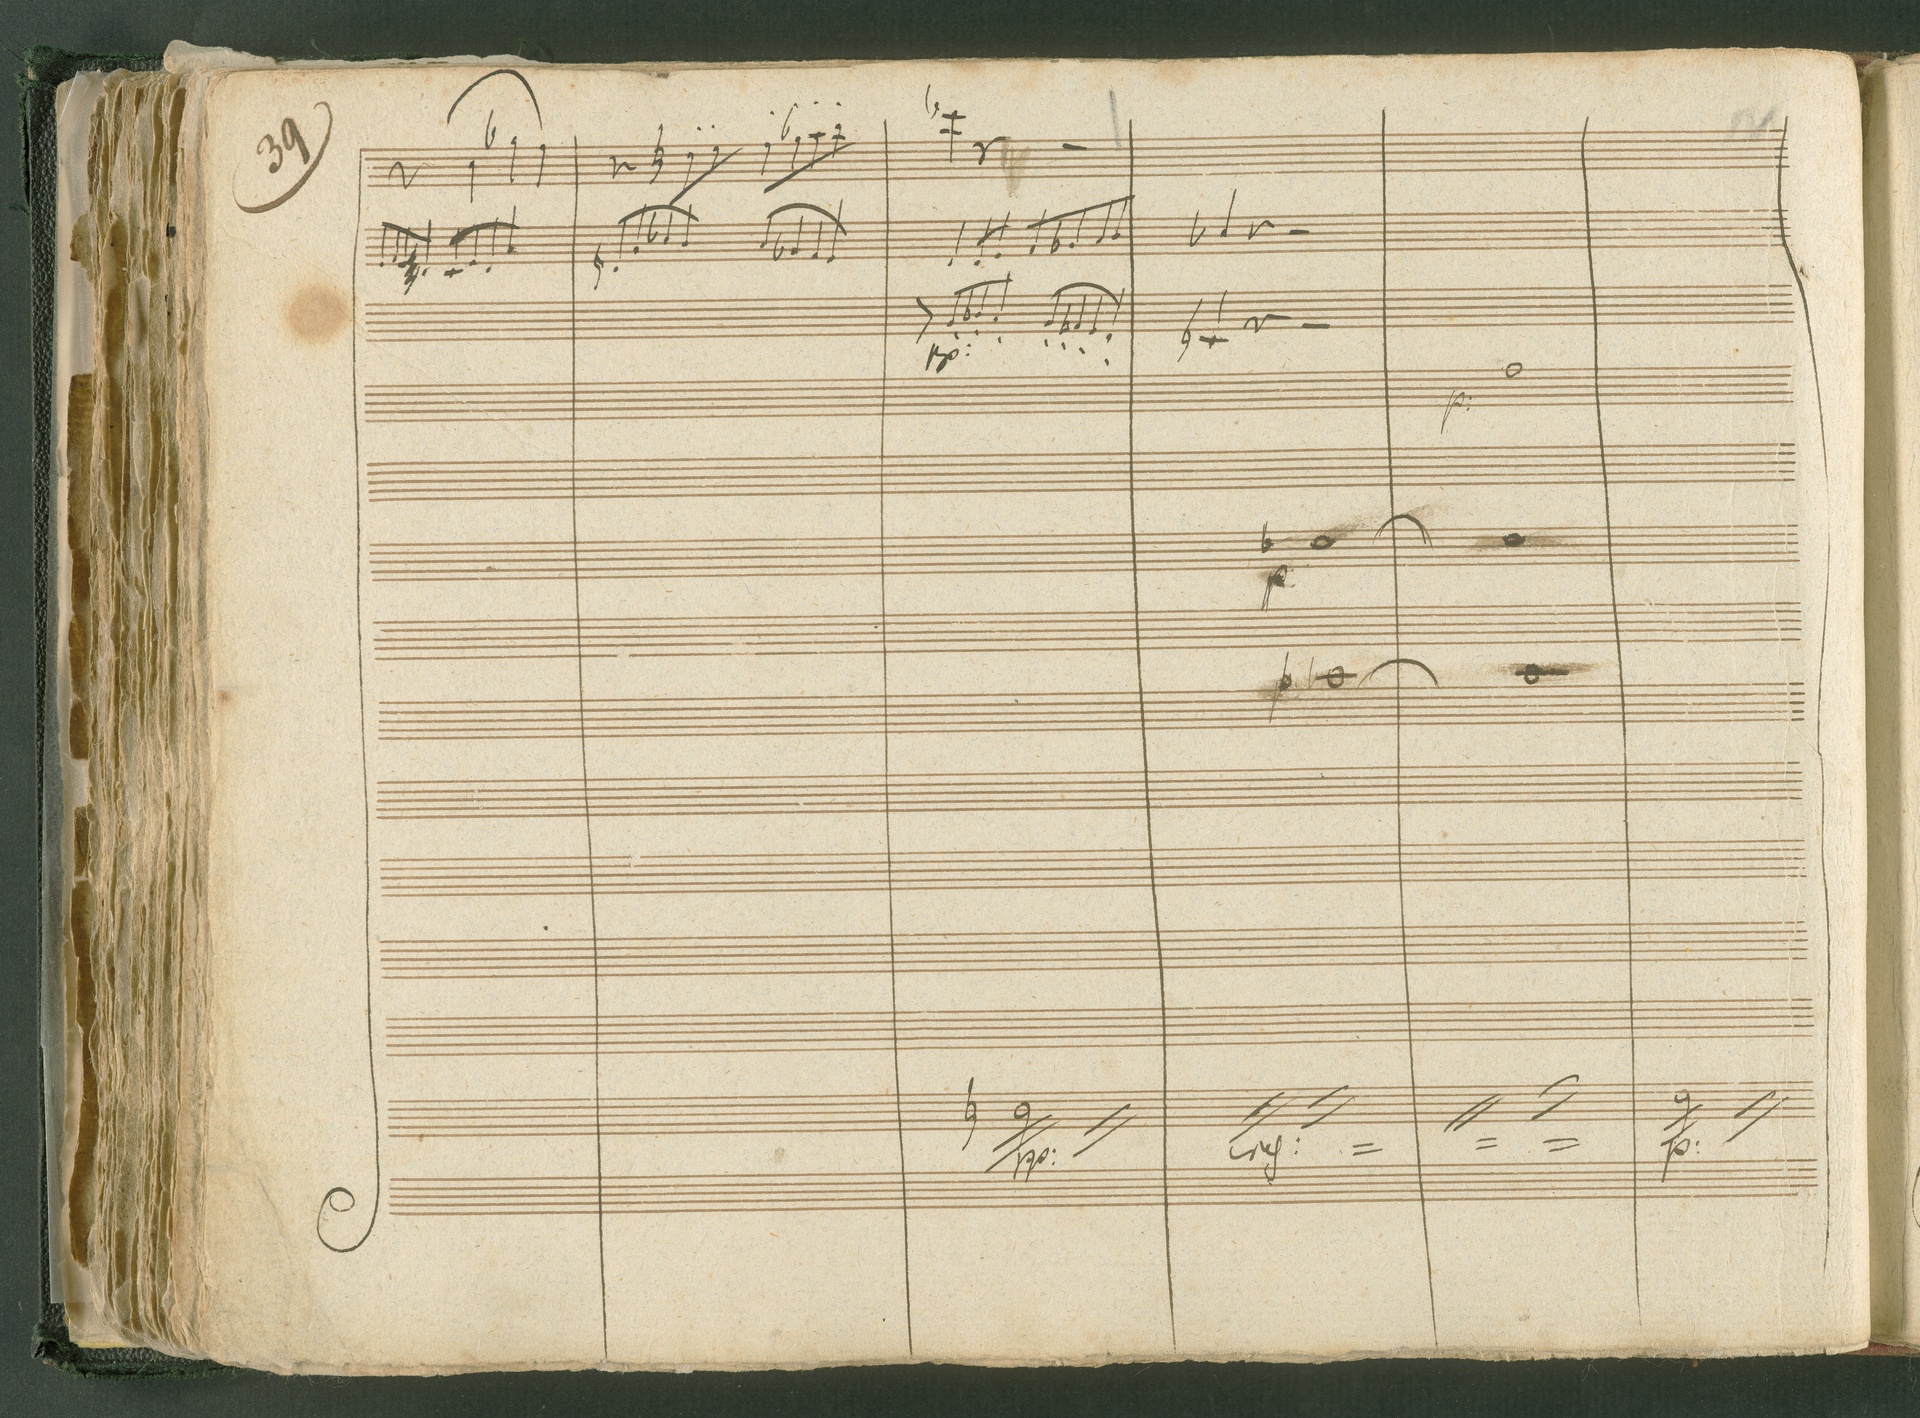 39
pp:
p:
p
p
pp:
cresc: = = =
p: